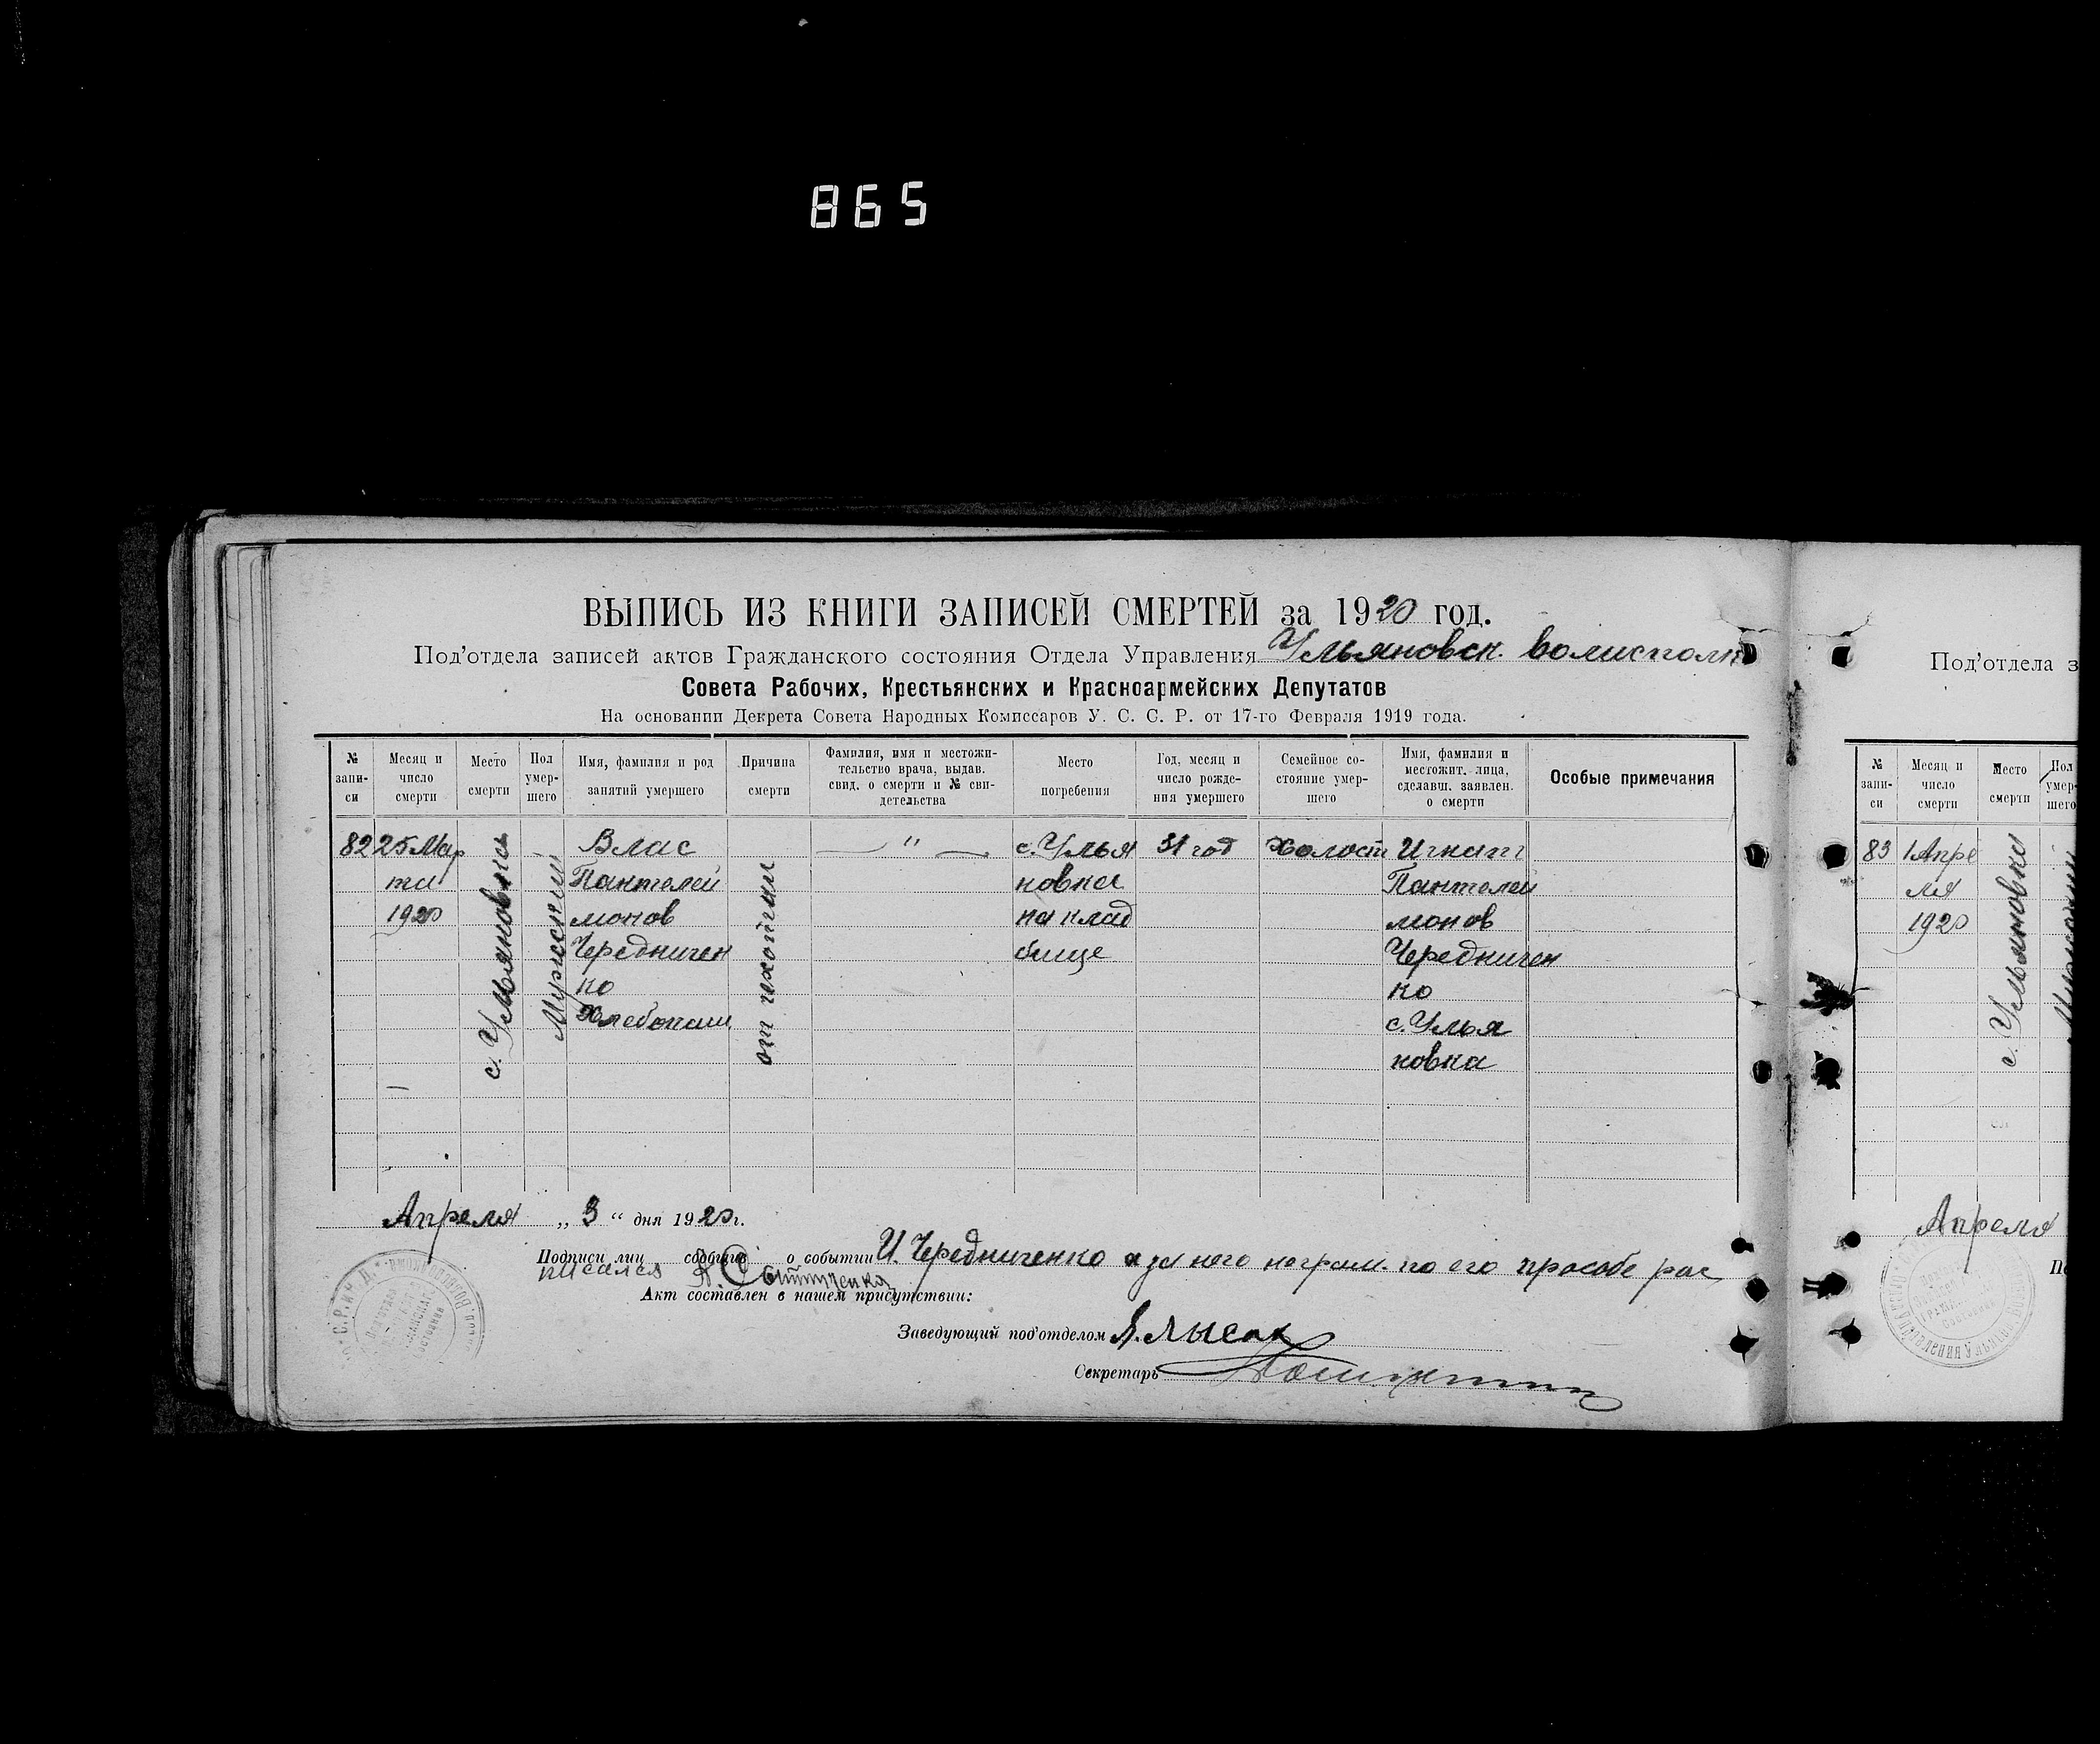 865
ВЫПИСЬ ИЗ КНИГИ ЗАПИСЕЙ СМЕРТЕЙ за 1920 год.
Под'отдела записей актов Гражданского состояния Отдела Управления Ульяновск. волисполк
Совета Рабочих, Крестьянских и Красноармейских Депутатов
На основании Декрета Совета Народных Комиссаров У. С. С. Р. от 17-го Февраля 1919 года.
№ запи-
си
Месяц и
число
смерти
Место
смерти
Пол
умер-
шего
Имя, фамилия и род
занятий умершего
Причина
смерти
Фамилия, имя и местожи-
тельство врача, выдав.
свид. о смерти и № сви-
детельства
Место
погребения
Год, месяц и
число рожде-
ния умершего
Семейное со-
стояние умер-
шего
Имя, фамилия и
местожит. лица,
сделавш. заявлен.
о смерти
Особые примечания
82
25 Мар
та
1920
с. Ульяновка
Мужский
Влас
Пантелей
монов
Чередничен
ко
Хлебопаш
от
"
с. Улья
новка
на клад
бище
31 год
холост
Игнат
Пантелей
монов
Чередничен
ко
с. Улья
новка
Апреля „ 3 “ дня 1920 г.
Подписи лиц о событии И. Чередниченко а за него неграм. по его прозбе рас
писался
Акт составлен в нашем присутствии:
Заведующий под'отделом Я. Лысак
Секретарь
Под'отдела з
№
запи-
си
Месяц и
число
смерти
Место
смерти
Пол
умер-
шего
83
1 Апре
ля
1920
с. Ульяновка
Апреля